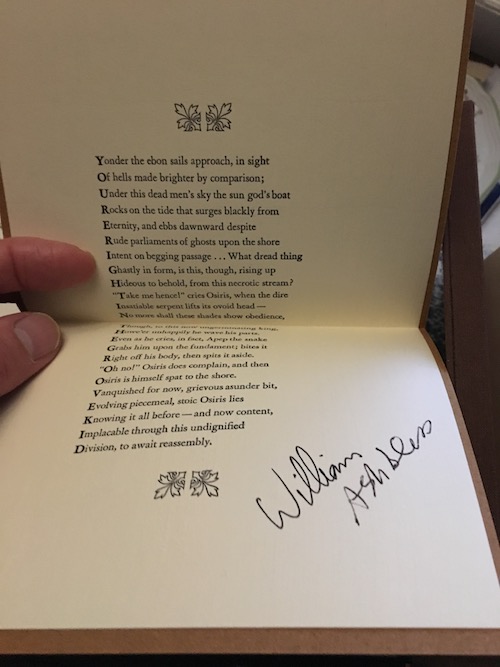 Yonder the ebon sails approach, in sight
Of hells made brighter by comparison;
Under this dead men's sky the sun god's boat
Rocks on the tide that surges blackly from
Eternity, and ebbs dawnward despite
Rude parliaments of ghosts upon the shore
Intent on begging passage ... What dread thing
Ghastly in form, is this, though, rising up
Hideous to behold, from this necrotic stream?
"Take me hence!" cries Osiris, when the dire
Insatiable serpent lifts its ovoid head—
No more shall these shades show obedience,
Though, to this now ungerminating king,
Howe'er unhappily he wave his parts.
Even as he cries, in fact, Apep the snake
Grabs him upon the fundament; bites it
Right off his body, then spits it aside.
"Oh no!" Osiris does complain, and then
Osiris is himself spat to the shore.
Vanquished for now, grievous asunder bit,
Evolving piecemeal, stoic Osiris lies
Knowing it all before—and now content,
Implacable through this undignified
Division, to await reassembly.
William
Ashbless